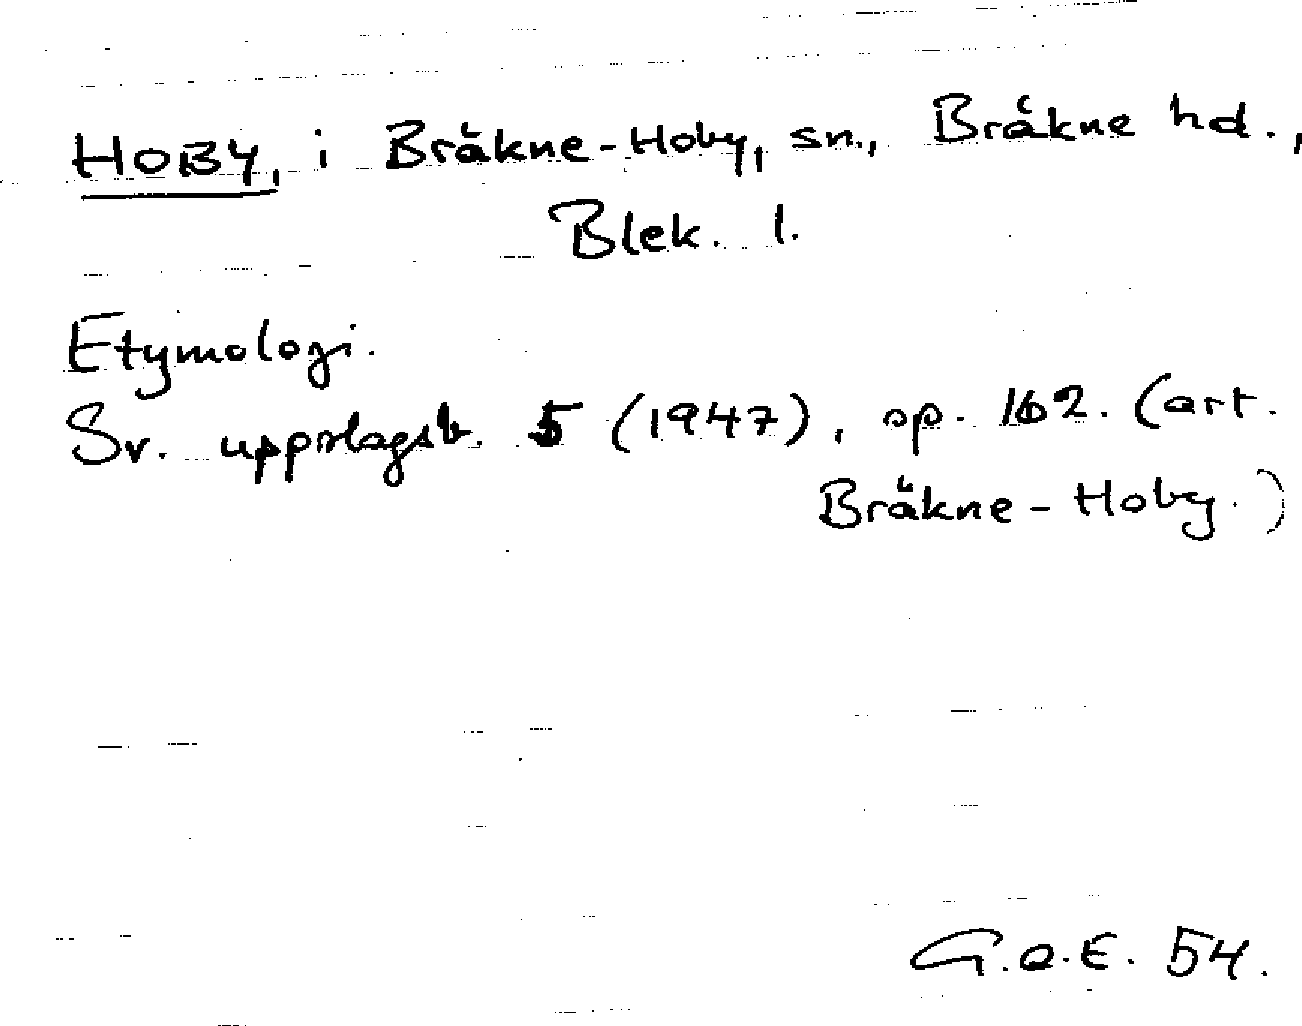 HOBY, i Bräkne-Hoby, sn., Bräkne hd.,
Blek. l.
Etymologi.
Sv. uppslagsb. 5 (1947), sp. 162. (art.
Bräkne-Hoby.)
G.O.E. 54.